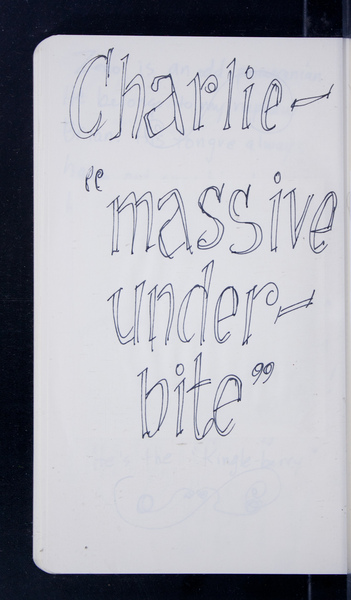 Charlie-
"massive
under-
bite"